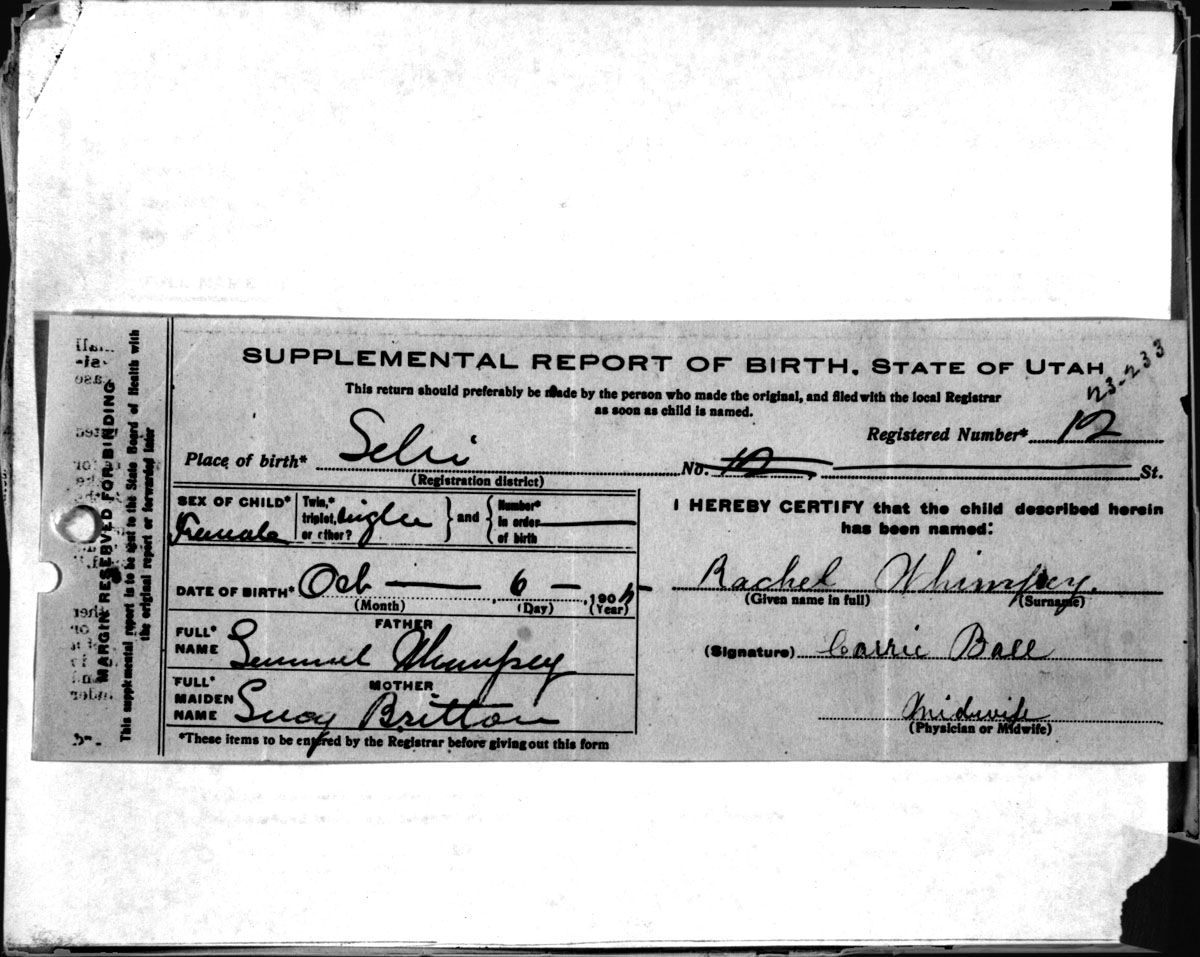 SUPPLEMENTAL REPORT OF BIRTH, STATE OF UTAH
23-233
This return should preferably be made by the person who made the original, and filed with the local Registrar
as soon as child is named.
Registered Number* 12
Place of birth* Lehi No. 12 St.
(Registration district)
SEX OF CHILD* Female
Twin,* triplet, or other? single and Number* in order of birth
DATE OF BIRTH* Oct 6, 190
(Month) (Day) (Year)
FATHER
FULL* NAME Lemuel Whimpey
MOTHER
FULL* MAIDEN NAME Lucy Britton
*These items to be entered by the Registrar before giving out this form
I HEREBY CERTIFY that the child described herein
has been named:
Rachel Whimpey.
(Given name in full) (Surname)
(Signature) Carrie Ball
Midwife
(Physician or Midwife)
MARGIN RESERVED FOR BINDING
This supplemental report is to be sent to the State Board of Health with
the original report or forwarded later